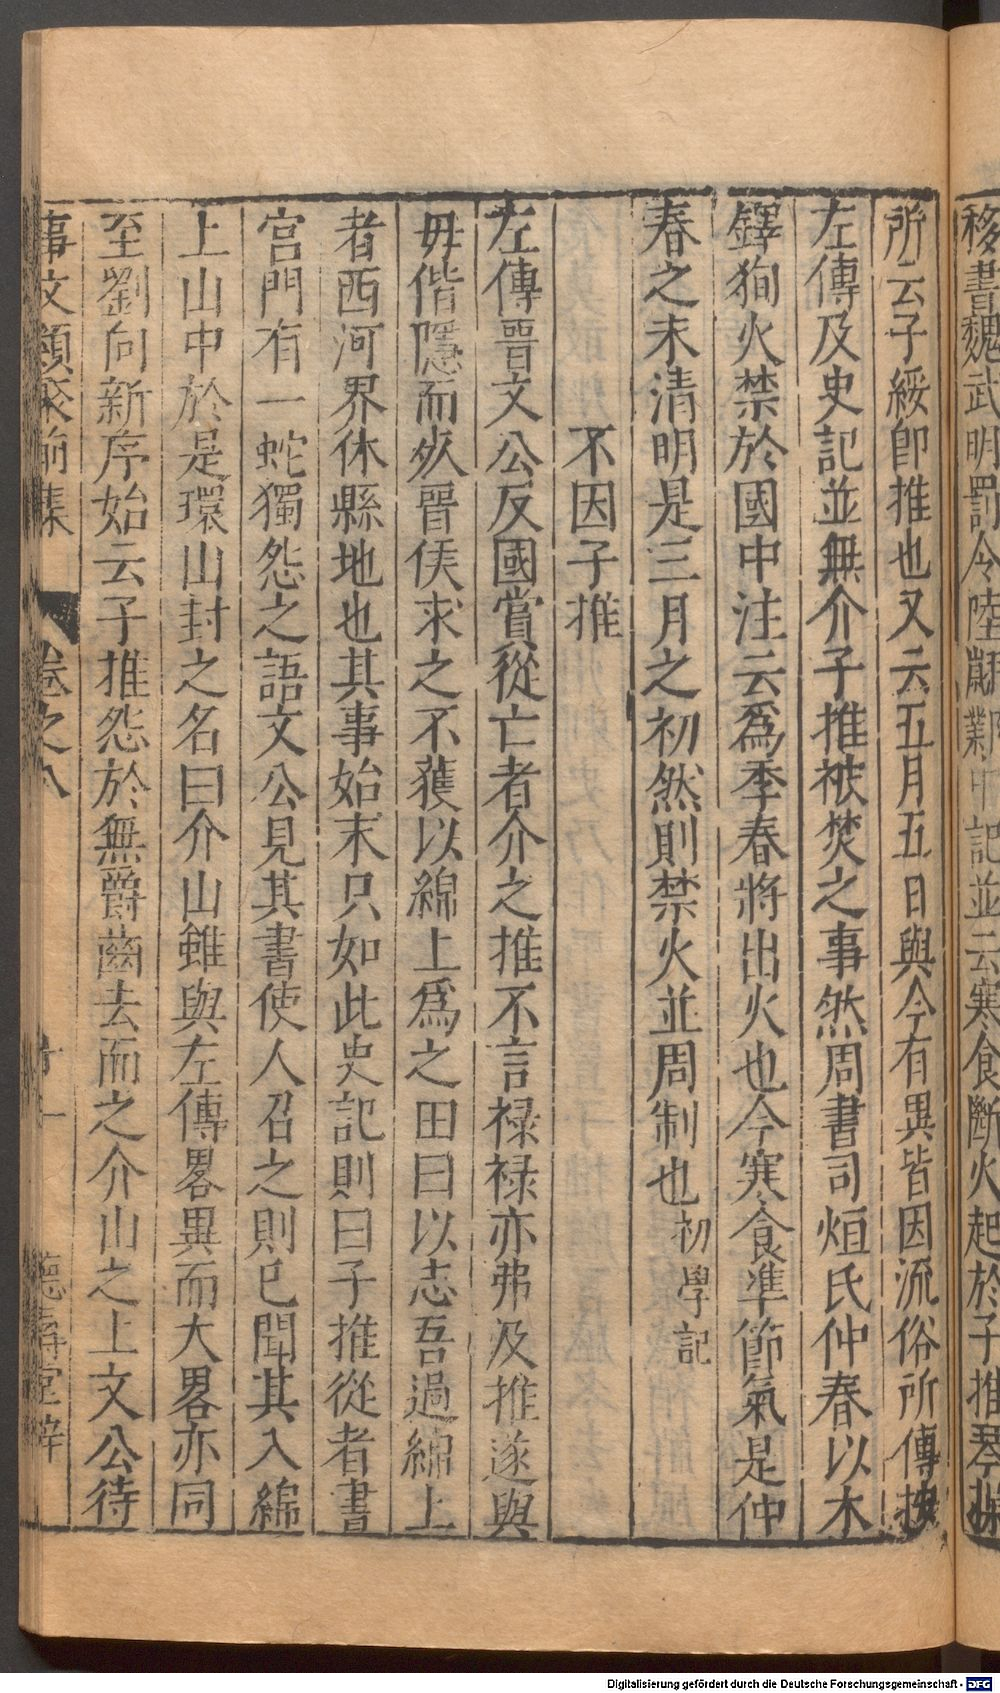 移書魏武明罰令陸翽鄴中記並云寒食斷火起於子推琴操
所云子綏卽推也又云五月五日與今有異皆因流俗所傳按
左傳及史記並無介子推被焚之事然周書司烜氏仲春以木
鐸狥火禁於國中注云爲季春將出火也今寒食準節氣是仲
春之末清明是三月之初然則禁火並周制也初學記
不因子推
左傳晉文公反國賞從亡者介之推不言禄禄亦弗及推遂與
毋偕隱而死晉侯求之不獲以綿上爲之田曰以志吾過綿上
者西河界休縣地也其事始末只如此史記則曰子推從者書
宮門有一蛇獨怨之語文公見其書使人召之則已聞其入綿
上山中於是環山封之名曰介山雖與左傳畧異而大畧亦同
至劉向新序始云子推怨於無爵齒去而之介山之上文公待
事文類聚前集 卷之八 十一 德壽堂梓
Digitalisierung gefördert durch die Deutsche Forschungsgemeinschaft - DFG